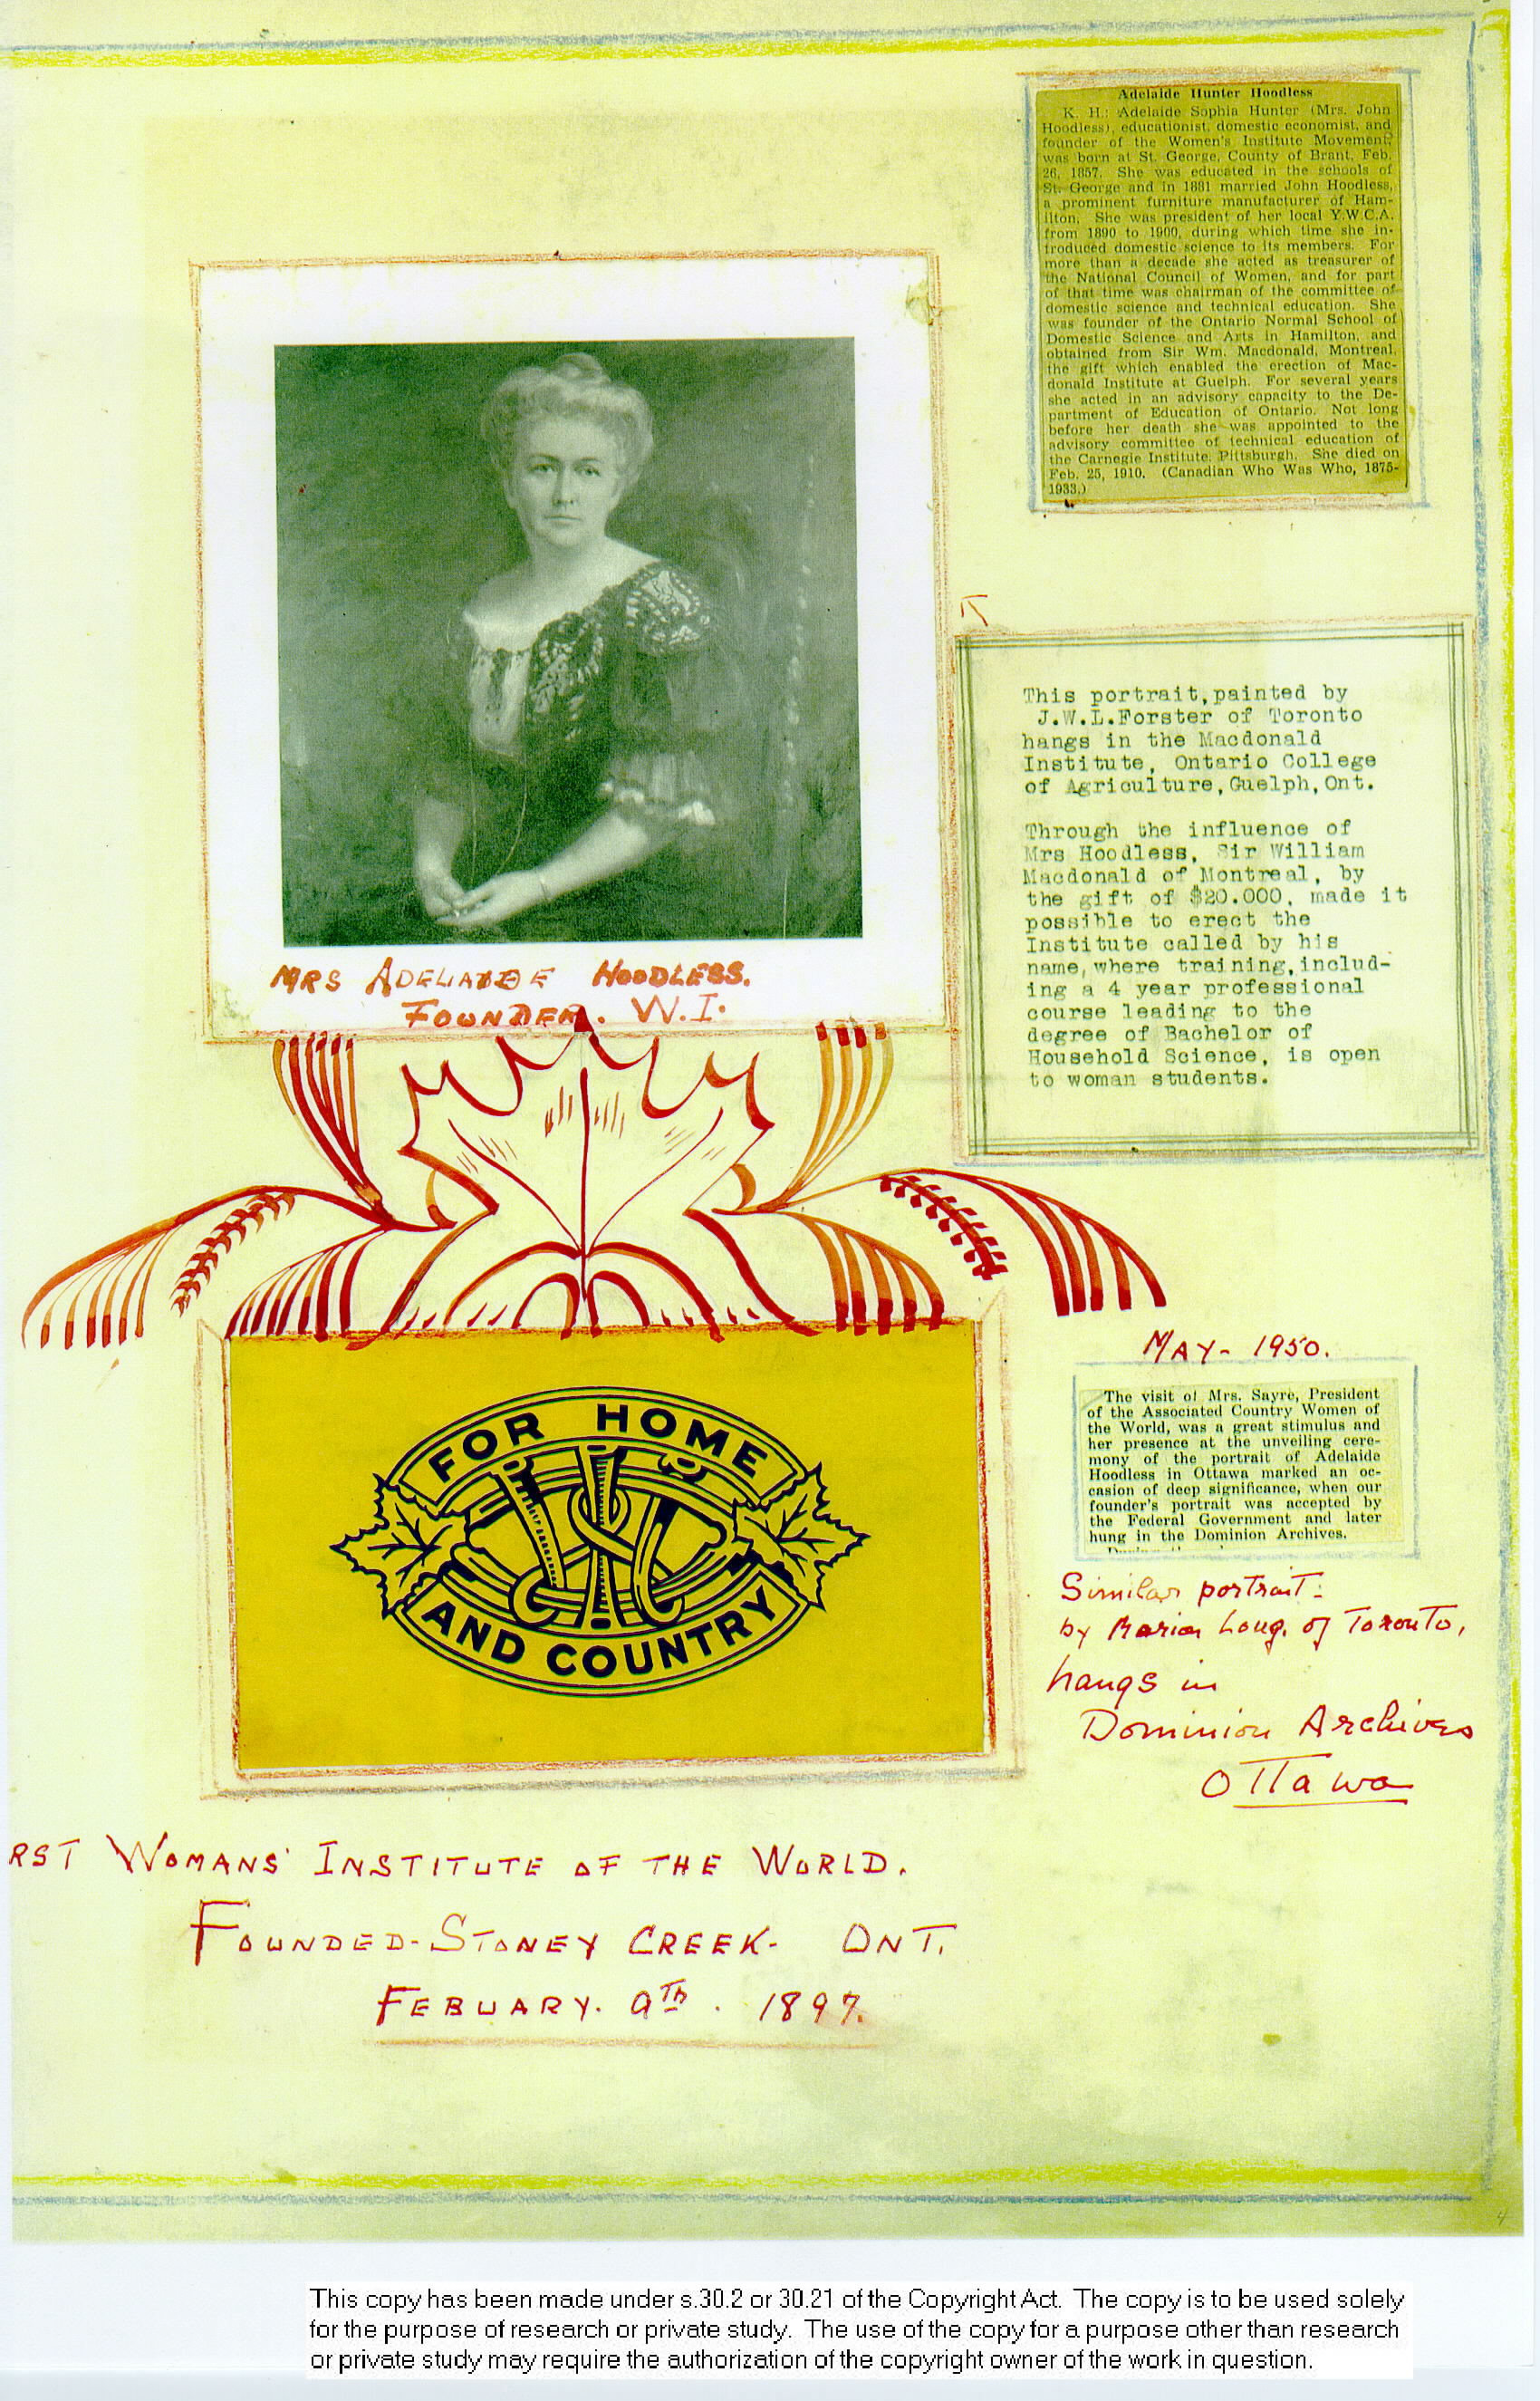 Adelaide Hunter Hoodless
K. H.: Adelaide Sophia Hunter (Mrs. John
Hoodless), educationist, domestic economist, and
founder of the Women's Institute Movement,
was born at St. George, County of Brant, Feb.
26, 1857. She was educated in the schools of
St. George and in 1881 married John Hoodless,
a prominent furniture manufacturer of Ham-
ilton. She was president of her local Y.W.C.A.
from 1890 to 1900, during which time she in-
troduced domestic science to its members. For
more than a decade she acted as treasurer of
the National Council of Women, and for part
of that time was chairman of the committee of
domestic science and technical education. She
was founder of the Ontario Normal School of
Domestic Science and Arts in Hamilton, and
obtained from Sir Wm. Macdonald, Montreal,
the gift which enabled the erection of Mac-
donald Institute at Guelph. For several years
she acted in an advisory capacity to the De-
partment of Education of Ontario. Not long
before her death she was appointed to the
advisory committee of technical education of
the Carnegie Institute, Pittsburgh. She died on
Feb. 25, 1910. (Canadian Who Was Who, 1875-
1933.)
MRS ADELAIDE HOODLESS.
FOUNDER. W.I.
This portrait,painted by
J.W.L.Forster of Toronto
hangs in the Macdonald
Institute, Ontario College
of Agriculture,Guelph,Ont.
Through the influence of
Mrs Hoodless, Sir William
Macdonald of Montreal, by
the gift of $20.000, made it
possible to erect the
Institute called by his
name,where training,includ-
ing a 4 year professional
course leading to the
degree of Bachelor of
Household Science, is open
to woman students.
FOR HOME
AND COUNTRY
MAY- 1950.
The visit of Mrs. Sayre, President
of the Associated Country Women of
the World, was a great stimulus and
her presence at the unveiling cere-
mony of the portrait of Adelaide
Hoodless in Ottawa marked an oc-
casion of deep significance, when our
founder's portrait was accepted by
the Federal Government and later
hung in the Dominion Archives.
Similar portrait:
by Marion Long. of Toronto,
hangs in
Dominion Archives
Ottawa
RST WOMANS' INSTITUTE OF THE WORLD.
FOUNDED-STONEY CREEK- ONT.
FEBUARY. 9TH. 1897.
This copy has been made under s.30.2 or 30.21 of the Copyright Act. The copy is to be used solely
for the purpose of research or private study. The use of the copy for a purpose other than research
or private study may require the authorization of the copyright owner of the work in question.